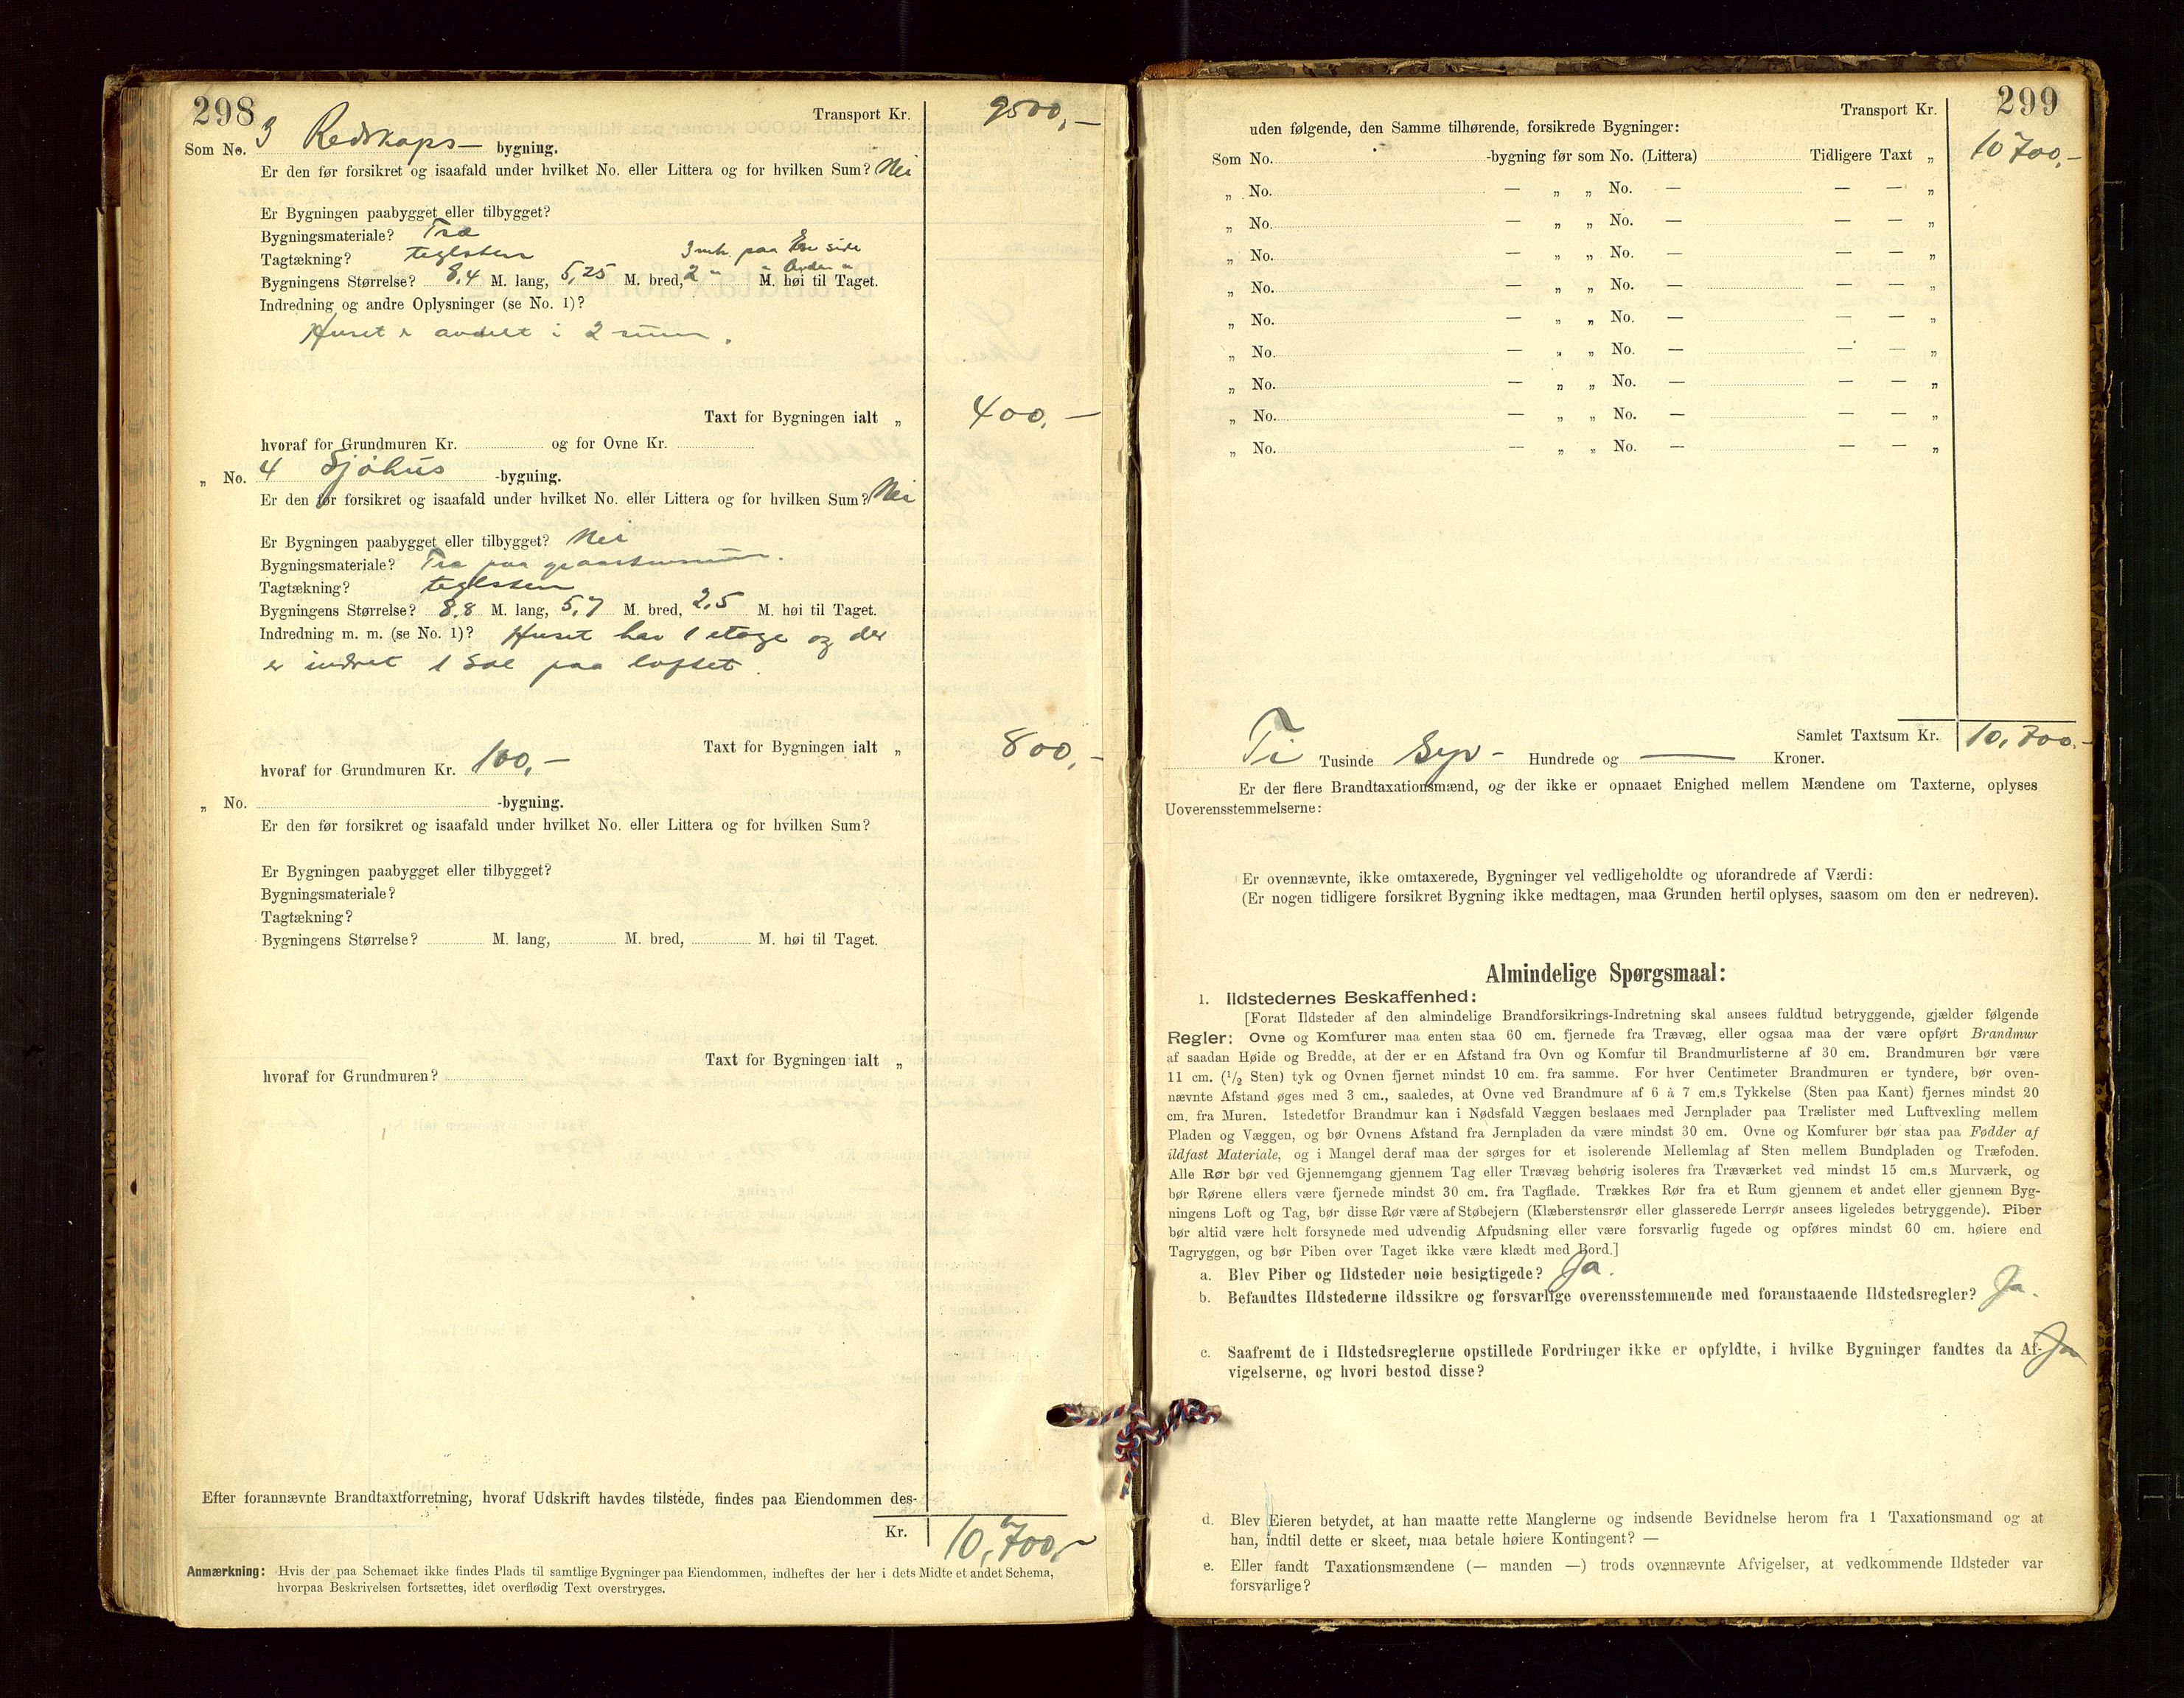 298
Transport Kr. 9500,-
Som No. 3 Redskaps- bygning.
Er den før forsikret og isaafald under hvilket No. eller Littera og for hvilken Sum? Nei
Er Bygningen paabygget eller tilbygget?
Bygningsmateriale? Træ
Tagtækning? teglsten 3 mtr. paa Ene side
Bygningens Størrelse? 8,4 M. lang, 5,25 M. bred, 2 " " Anden " M. høi til Taget.
Indredning og andre Oplysninger (se No. 1)?
Huset er avdelt i 2 rum.
Taxt for Bygningen ialt „ 400,-
hvoraf for Grundmuren Kr. og for Ovne Kr.
„ No. 4 Sjøhus -bygning.
Er den før forsikret og isaafald under hvilket No. eller Littera og for hvilken Sum? Nei
Er Bygningen paabygget eller tilbygget? Nei
Bygningsmateriale? Træ paa graastensmur.
Tagtækning? teglsten
Bygningens Størrelse? 8,8 M. lang, 5,7 M. bred, 2,5 M. høi til Taget.
Indredning m. m. (se No. 1)? Huset har 1 etage og der
er indret 1 Sal paa loftet.
Taxt for Bygningen ialt „ 800,-
hvoraf for Grundmuren Kr. 100,-
„ No. -bygning.
Er den før forsikret og isaafald under hvilket No. eller Littera og for hvilken Sum?
Er Bygningen paabygget eller tilbygget?
Bygningsmateriale?
Tagtækning?
Bygningens Størrelse? M. lang, M. bred, M. høi til Taget.
Taxt for Bygningen ialt „
hvoraf for Grundmuren?
Efter forannævnte Brandtaxtforretning, hvoraf Udskrift havdes tilstede, findes paa Eiendommen des-
Kr. 10,700,-
Anmærkning: Hvis der paa Schemaet ikke findes Plads til samtlige Bygninger paa Eiendommen, indheftes der her i dets Midte et andet Schema,
hvorpaa Beskrivelsen fortsættes, idet overflødig Text overstryges.
299
Transport Kr.
uden følgende, den Samme tilhørende, forsikrede Bygninger:
Som No. -bygning før som No. (Littera) Tidligere Taxt „ 10700,-
„ No. — „ „ No. — — — „
„ No. — „ „ No. — — — „
„ No. — „ „ No. — — — „
„ No. — „ „ No. — — — „
„ No. — „ „ No. — — — „
„ No. — „ „ No. — — — „
„ No. — „ „ No. — — — „
„ No. — „ „ No. — — — „
„ No. — „ „ No. — — — „
Samlet Taxtsum Kr. 10,700.-
Ti Tusinde Syv- Hundrede og — Kroner.
Er der flere Brandtaxationsmænd, og der ikke er opnaaet Enighed mellem Mændene om Taxterne, oplyses
Uoverensstemmelserne:
Er ovennævnte, ikke omtaxerede, Bygninger vel vedligeholdte og uforandrede af Værdi:
(Er nogen tidligere forsikret Bygning ikke medtagen, maa Grunden hertil oplyses, saasom om den er nedreven).
Almindelige Spørgsmaal:
1. Ildstedernes Beskaffenhed:
[Forat Ildsteder af den almindelige Brandforsikrings-Indretning skal ansees fuldtud betryggende, gjælder følgende
Regler: Ovne og Komfurer maa enten staa 60 cm. fjernede fra Trævæg, eller ogsaa maa der være opført Brandmur
af saadan Høide og Bredde, at der er en Afstand fra Ovn og Komfur til Brandmurlisterne af 30 cm. Brandmuren bør være
11 cm. (1/2 Sten) tyk og Ovnen fjernet mindst 10 cm. fra samme. For hver Centimeter Brandmuren er tyndere, bør oven-
nævnte Afstand øges med 3 cm., saaledes, at Ovne ved Brandmure af 6 à 7 cm.s Tykkelse (Sten paa Kant) fjernes mindst 20
cm. fra Muren. Istedetfor Brandmur kan i Nødsfald Væggen beslaaes med Jernplader paa Trælister med Luftvexling mellem
Pladen og Væggen, og bør Ovnens Afstand fra Jernpladen da være mindst 30 cm. Ovne og Komfurer bør staa paa Fødder af
ildfast Materiale, og i Mangel deraf maa der sørges for et isolerende Mellemlag af Sten mellem Bundpladen og Træfoden.
Alle Rør bør ved Gjennemgang gjennem Tag eller Trævæg behørig isoleres fra Træværket ved mindst 15 cm.s Murværk, og
bør Rørene ellers være fjernede mindst 30 cm. fra Tagflade. Trækkes Rør fra et Rum gjennem et andet eller gjennem Byg-
ningens Loft og Tag, bør disse Rør være af Støbejern (Klæberstensrør eller glasserede Lerrør ansees ligeledes betryggende). Piber
bør altid være helt forsynede med udvendig Afpudsning eller være forsvarlig fugede og opføres mindst 60 cm. høiere end
Tagryggen, og bør Piben over Taget ikke være klædt med Bord.]
a. Blev Piber og Ildsteder nøie besigtigede? Ja.
b. Befandtes Ildstederne ildssikre og forsvarlige overensstemmende med foranstaaende Ildstedsregler? Ja.
c. Saafremt de i Ildstedsreglerne opstillede Fordringer ikke er opfyldte, i hvilke Bygninger fandtes da Af- Ja
vigelserne, og hvori bestod disse?
d. Blev Eieren betydet, at han maatte rette Manglerne og indsende Bevidnelse herom fra 1 Taxationsmand og at
han, indtil dette er skeet, maa betale høiere Kontingent? —
e. Eller fandt Taxationsmændene (— manden —) trods ovennævnte Afvigelser, at vedkommende Ildsteder var
forsvarlige?